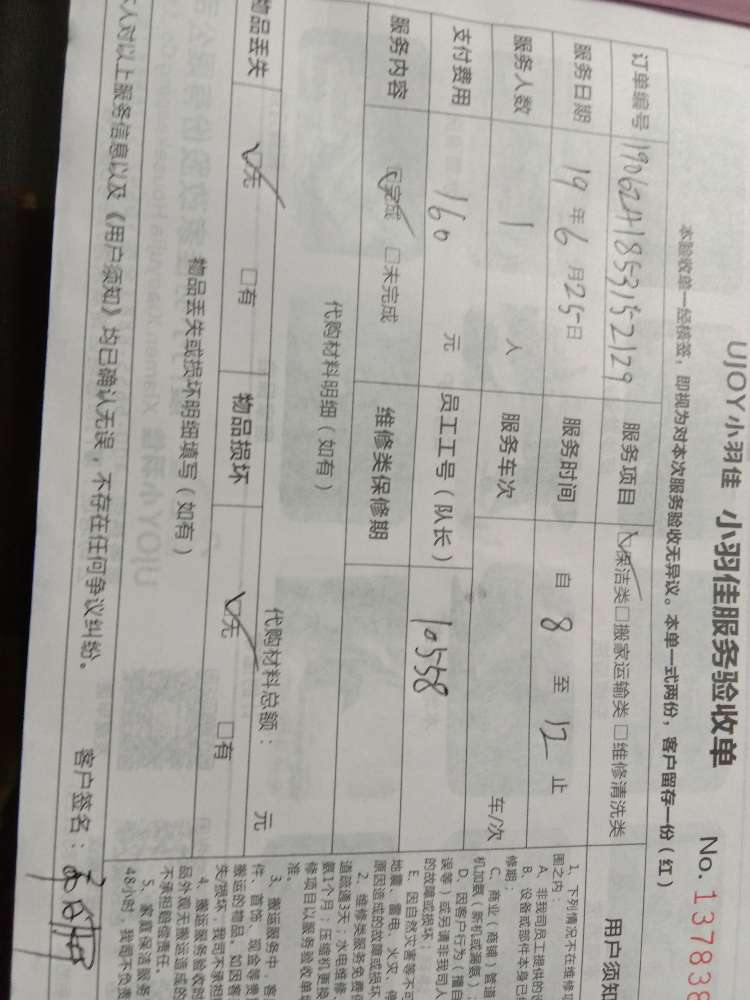 UJOY小羽佳 小羽佳服务验收单 No. 137838
本验收单一经接签，即视为对本次服务验收无异议。本单一式两份，客户留存一份（红）
订单编号 1906241853152129 服务项目 ☑保洁类□搬家运输类 □维修清洗类
服务日期 19年6月25日 服务时间 自 8 至 12 止
服务人数 1 人 服务车次 车/次
支付费用 160 元 员工工号（队长） 10558
服务内容 ☑完成 □未完成 维修类保修期
代购材料明细（如有）
代购材料总额： 元
物品丢失 ☑无 □有 物品损坏 ☑无 □有
物品丢失或损坏明细填写（如有）
本人对以上服务信息以及《用户须知》均已确认无误，不存在任何争议纠纷。
客户签名：
用户须知
1、下列情况不在维修
围之内：
A、非我司员工提供的
B、设备或部件本身已
修期；
C、商业（商铺）管道
机加氨（新机或漏氨）；
D、因客户行为（擅自
误等）或另请非我司人
的故障或损坏；
E、因自然灾害等不可
地震、雷电、火灾、
原因造成的故障或损坏
2、维修类服务免费保
道疏通3天；水电维修
氨1个月；压缩机更换
修项目以服务验收单
准。
3、搬运服务中，客
件、首饰、现金等贵
搬运的物品。如因客
失/损坏，我司不承担
4、搬运服务验收时
品外观无搬运造成的
不承担赔偿责任。
5、家庭保洁服务
48小时，我司不负责